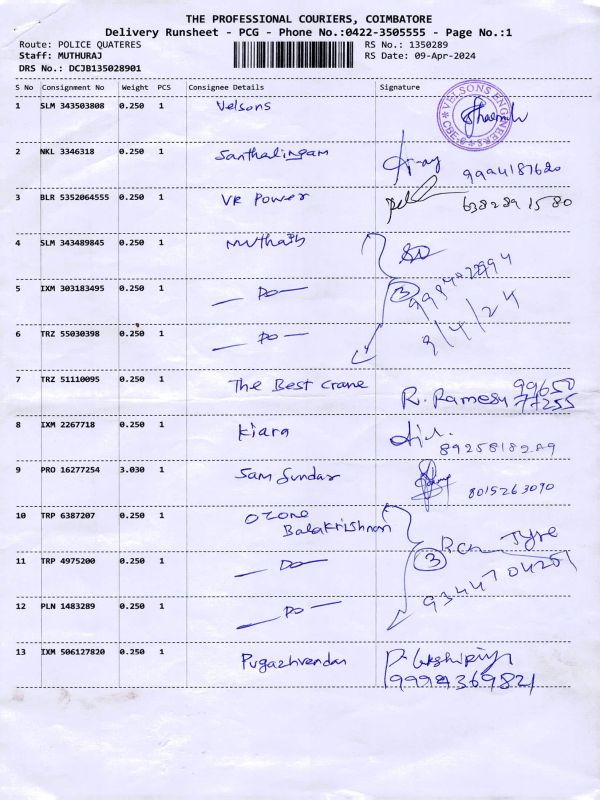 THE PROFESSIONAL COURIERS, COIMBATORE
Delivery Runsheet - PCG - Phone No.:0422-3505555 - Page No.:1
Route: POLICE QUATERES RS No.: 1350289
Staff: MUTHURAJ RS Date: 09-Apr-2024
DRS No.: DCJB135028901
S No Consignment No Weight PCS Consignee Details Signature
1 SLM 343503808 0.250 1 Velsons
VELSONS ENGINEERS CBE-6
2 NKL 3346318 0.250 1 Santhalingam 9994187620
3 BLR 5352064555 0.250 1 VR Power 6382891580
4 SLM 343489845 0.250 1 Muthaih
5 IXM 303183495 0.250 1 — Do — 3
9/4/24
6 TRZ 55030398 0.250 1 — Do —
7 TRZ 51110095 0.250 1 The Best Crane R. Ramesh 99650 77255
8 IXM 2267718 0.250 1 Kiara 8925818289
9 PRO 16277254 3.030 1 Sam Sundar 8015263090
10 TRP 6387207 0.250 1 Ozone Balakrishnan
Tyre
11 TRP 4975200 0.250 1 — Do — 3 9344704251
12 PLN 1483289 0.250 1 — Do —
13 IXM 506127820 0.250 1 Pugazhvendan P. Lakshipriya
9994369821